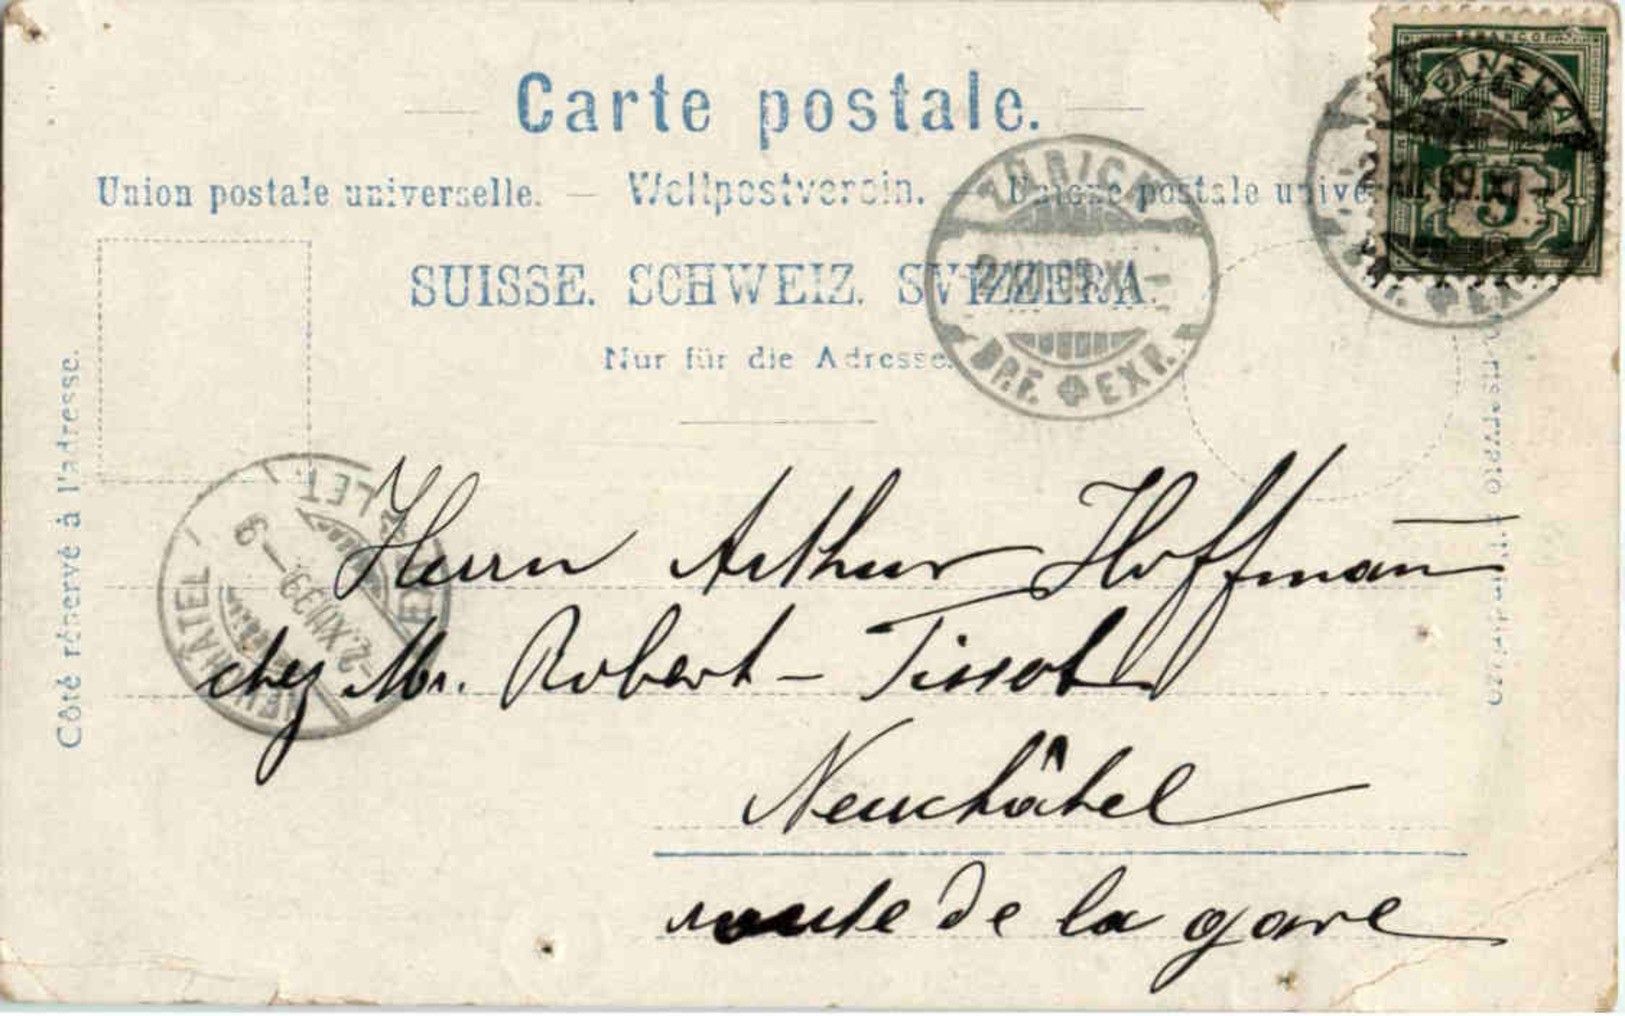 Carte postale.
Union postale universelle. – Weltpostverein. – Unione postale universale
SUISSE. SCHWEIZ. SVIZZERA.
Nur für die Adresse.
Côté réservé à l'adresse.
ZÜRICH
BRF. EXP.
NEUCHÂTEL
EXP. LET.
-2.XII.99-9
FRANCO
5
Herrn Arthur Hoffmann
chez Mr. Robert-Tissot
Neuchâtel
route de la gare